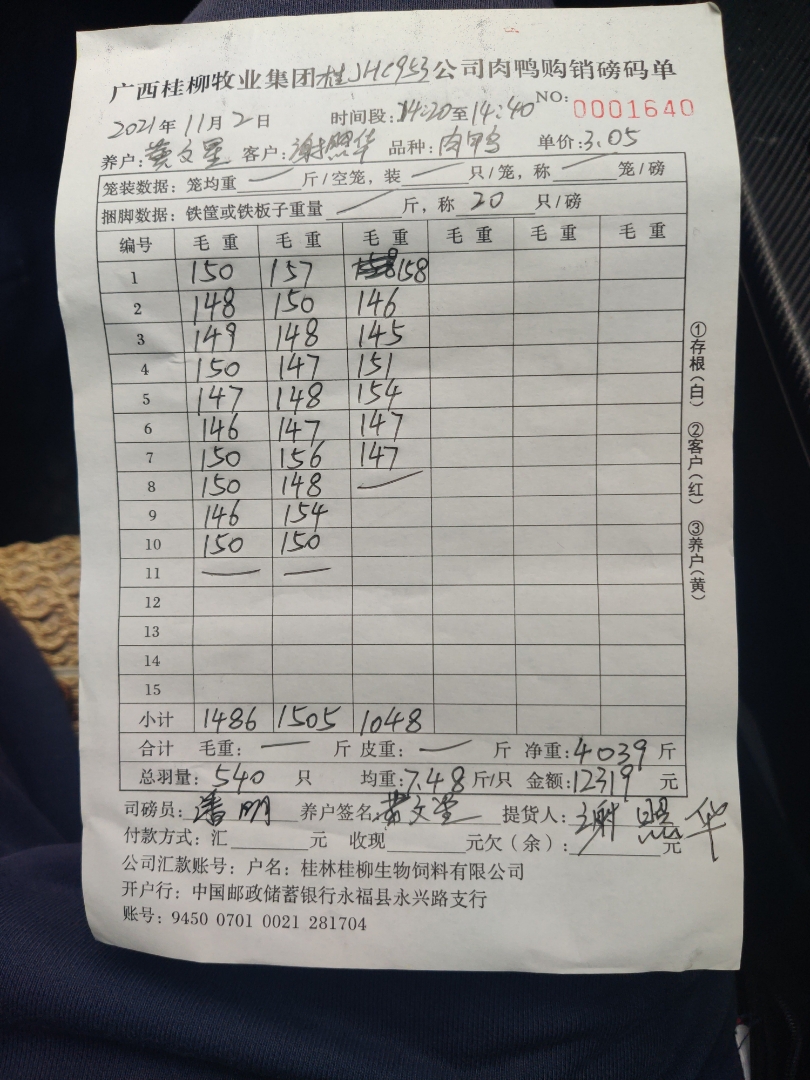 广西桂柳牧业集团桂JHC953公司肉鸭购销磅码单
2021年11月2日 时间段:14:20至14:40 NO: 0001640
养户:黄文星 客户:谢照华 品种:肉鸭 单价:3.05
笼装数据: 笼均重 — 斤/空笼, 装 — 只/笼, 称 — 笼/磅
捆脚数据: 铁筐或铁板子重量 — 斤, 称 20 只/磅
编号 毛重 毛重 毛重 毛重 毛重 毛重
1 150 157 158
2 148 150 146
3 149 148 145
4 150 147 151
5 147 148 154
6 146 147 147
7 150 156 147
8 150 148 —
9 146 154
10 150 150
11 — —
12
13
14
15
小计 1486 1505 1048
合计 毛重: — 斤 皮重: — 斤 净重:4039斤
总羽量: 540 只 均重:7.48斤/只 金额:12319元
司磅员: 潘明 养户签名: 黄文星 提货人: 谢照华
付款方式: 汇 元 收现 元欠(余): 元
公司汇款账号: 户名: 桂林桂柳生物饲料有限公司
开户行: 中国邮政储蓄银行永福县永兴路支行
账号: 9450 0701 0021 281704
①存根(白) ②客户(红) ③养户(黄)